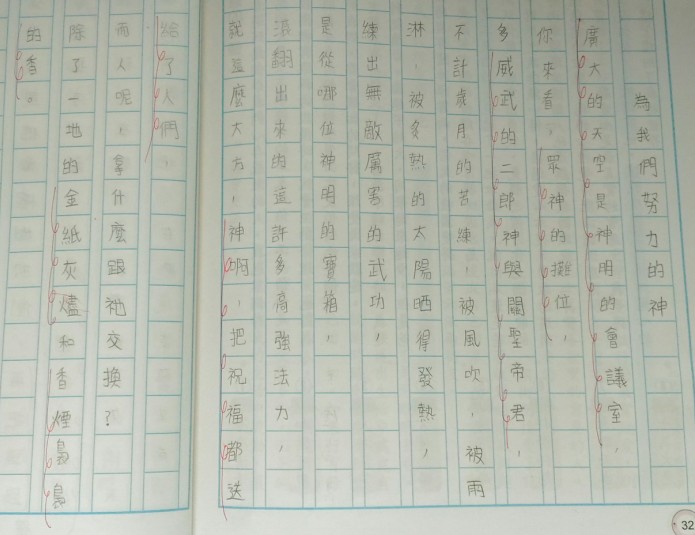 為我們努力的神
廣大的天空是神明的會議室，
你來看，眾神的攤位，
多威武的二郎神與關聖帝君，
不計歲月的苦練，被風吹，被雨
淋，被炙熱的太陽晒得發熱，
練出無敵厲害的武功，
是從哪位神明的寶箱，
沼翻出來的這許多高強法力，
就這麼大方，神啊，把祝福都送
給了人們，
而人呢，拿什麼跟祂交換？
除了一地的金紙灰燼和香煙裊裊
的香。
32